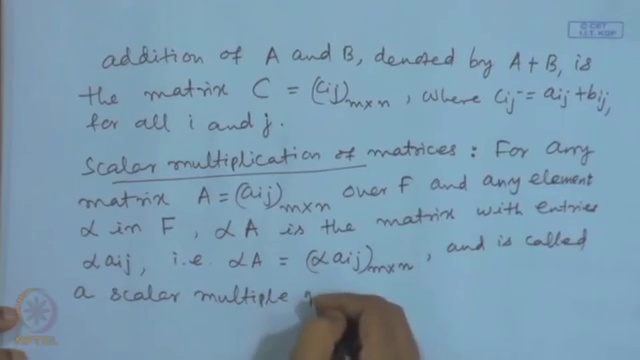 © CET
I.I.T. KGP
addition of A and B, denoted by A + B, is
the matrix C = (cij)m×n, where cij = aij + bij,
for all i and j.
Scalar multiplication of matrices : For any
matrix A = (aij)m×n over F and any element
α in F, αA is the matrix with entries
αaij, i.e. αA = (αaij)m×n, and is called
a scalar multiple
NPTEL